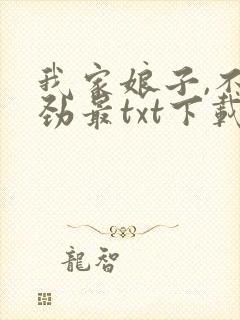 我家娘子,不
劲最txt下载
龍智